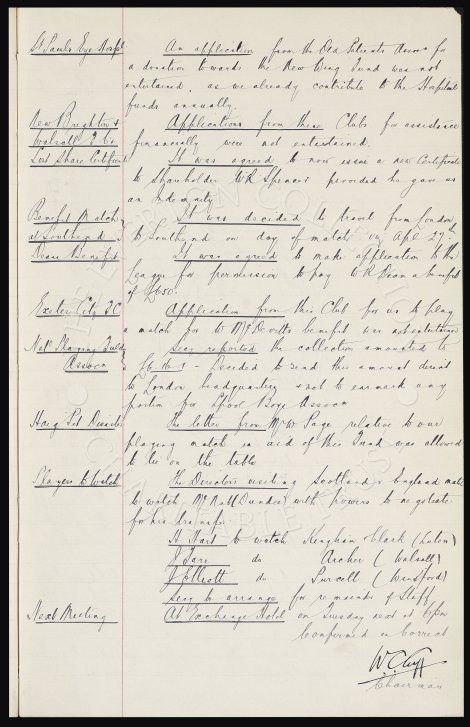 St Pauls Eye Hospl An application from the Old Patients Assocn for
a donation towards the New Wing Fund was not
entertained, as we already contribute to the Hospitals
funds annually.
New Brighton & Applications from these Clubs for assistance
Walsall F.Cs financially were not entertained.
Lost Share Certificate It was agreed to now issue a new Certificate
to Shareholder W R Spencer provided he gave us
an Indemnity
Benefit Match It was decided to travel from London
at Southend to Southend on day of match viz Apl 27th
Dean Benefit It was agreed to make application to the
League for permission to pay W R Dean a benefit
of £650.
Exeter City FC Application from this Club for us to play
a match for W benefit was not entertained
Natl Playing Fields Secy reported the collection amounted to
Assocn Decided to send this amount direct
to London headquarters & not to earmark any
portion for School Boys Assocn
Pit Disaster The letter from Mr W Page relative to our
playing match in aid of this Fund was allowed
to lie on the table
Players to Watch The Directors visiting Scotland v England match
to watch (Dundee) with powers to negotiate
for his transfer
H Hart to watch Clark (Luton)
J Fare do Archer (Walsall)
J Elliott do Purcell (Winsford)
Secy to arrange for remainder of Staff
Next Meeting At Exchange Hotel on Tuesday next at 6pm
Confirmed as Correct
W C Cuff
Chairman